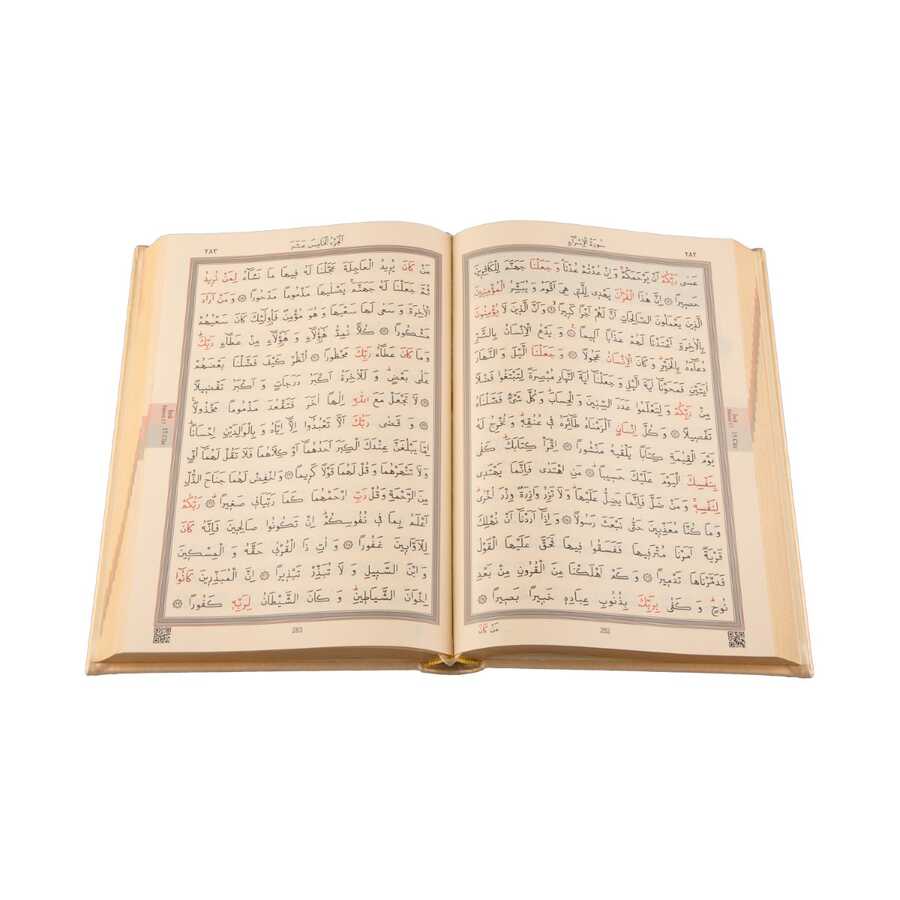 ٢٨٢
سُورَةُ الْإِسْرَاءِ
عَسٰى رَبُّكُمْ اَنْ يَرْحَمَكُمْ وَاِنْ عُدْتُمْ عُدْنَا وَجَعَلْنَا جَهَنَّمَ لِلْكَافِرِينَ
حَصِيرًا ۞ اِنَّ هٰذَا الْقُرْاٰنَ يَهْدِى لِلَّتِى هِىَ اَقْوَمُ وَيُبَشِّرُ الْمُؤْمِنِينَ
الَّذِينَ يَعْمَلُونَ الصَّالِحَاتِ اَنَّ لَهُمْ اَجْرًا كَبِيرًا ۞ وَاَنَّ الَّذِينَ لَا يُؤْمِنُونَ
بِالْاٰخِرَةِ اَعْتَدْنَا لَهُمْ عَذَابًا اَلِيمًا ۞ وَيَدْعُ الْاِنْسَانُ بِالشَّرِّ
دُعَاءَهُ بِالْخَيْرِ وَكَانَ الْاِنْسَانُ عَجُولًا ۞ وَجَعَلْنَا الَّيْلَ وَالنَّهَارَ
اٰيَتَيْنِ فَمَحَوْنَا اٰيَةَ الَّيْلِ وَجَعَلْنَا اٰيَةَ النَّهَارِ مُبْصِرَةً لِتَبْتَغُوا فَضْلًا
مِنْ رَبِّكُمْ وَلِتَعْلَمُوا عَدَدَ السِّنِينَ وَالْحِسَابَ وَكُلَّ شَىْءٍ فَصَّلْنَاهُ
تَفْصِيلًا ۞ وَكُلَّ اِنْسَانٍ اَلْزَمْنَاهُ طَائِرَهُ فِى عُنُقِهِ وَنُخْرِجُ لَهُ
يَوْمَ الْقِيٰمَةِ كِتَابًا يَلْقٰيهُ مَنْشُورًا ۞ اِقْرَأْ كِتَابَكَ كَفٰى
بِنَفْسِكَ الْيَوْمَ عَلَيْكَ حَسِيبًا ۞ مَنِ اهْتَدٰى فَاِنَّمَا يَهْتَدِى
لِنَفْسِهِ وَمَنْ ضَلَّ فَاِنَّمَا يَضِلُّ عَلَيْهَا وَلَا تَزِرُ وَازِرَةٌ وِزْرَ اُخْرٰى
وَمَا كُنَّا مُعَذِّبِينَ حَتّٰى نَبْعَثَ رَسُولًا ۞ وَاِذَا اَرَدْنَا اَنْ نُهْلِكَ
قَرْيَةً اَمَرْنَا مُتْرَفِيهَا فَفَسَقُوا فِيهَا فَحَقَّ عَلَيْهَا الْقَوْلُ
فَدَمَّرْنَاهَا تَدْمِيرًا ۞ وَكَمْ اَهْلَكْنَا مِنَ الْقُرُونِ مِنْ بَعْدِ
نُوحٍ وَكَفٰى بِرَبِّكَ بِذُنُوبِ عِبَادِهِ خَبِيرًا بَصِيرًا ۞
مَنْ كَانَ
282
٢٨٣
اَلْجُزْءُ الْخَامِسَ عَشَرَ
مَنْ كَانَ يُرِيدُ الْعَاجِلَةَ عَجَّلْنَا لَهُ فِيهَا مَا نَشَاءُ لِمَنْ نُرِيدُ
ثُمَّ جَعَلْنَا لَهُ جَهَنَّمَ يَصْلٰيهَا مَذْمُومًا مَدْحُورًا ۞ وَمَنْ اَرَادَ
الْاٰخِرَةَ وَسَعٰى لَهَا سَعْيَهَا وَهُوَ مُؤْمِنٌ فَاُولٰئِكَ كَانَ سَعْيُهُمْ
مَشْكُورًا ۞ كُلًّا نُمِدُّ هٰؤُلَاءِ وَهٰؤُلَاءِ مِنْ عَطَاءِ رَبِّكَ
وَمَا كَانَ عَطَاءُ رَبِّكَ مَحْظُورًا ۞ اُنْظُرْ كَيْفَ فَضَّلْنَا بَعْضَهُمْ
عَلٰى بَعْضٍ وَلَلْاٰخِرَةُ اَكْبَرُ دَرَجَاتٍ وَاَكْبَرُ تَفْضِيلًا
۞ لَا تَجْعَلْ مَعَ اللّٰهِ اِلٰهًا اٰخَرَ فَتَقْعُدَ مَذْمُومًا مَخْذُولًا
۞ وَقَضٰى رَبُّكَ اَلَّا تَعْبُدُوا اِلَّا اِيَّاهُ وَبِالْوَالِدَيْنِ اِحْسَانًا
اِمَّا يَبْلُغَنَّ عِنْدَكَ الْكِبَرَ اَحَدُهُمَا اَوْ كِلَاهُمَا فَلَا تَقُلْ لَهُمَا اُفٍّ
وَلَا تَنْهَرْهُمَا وَقُلْ لَهُمَا قَوْلًا كَرِيمًا ۞ وَاخْفِضْ لَهُمَا جَنَاحَ الذُّلِّ
مِنَ الرَّحْمَةِ وَقُلْ رَبِّ ارْحَمْهُمَا كَمَا رَبَّيَانِى صَغِيرًا ۞ رَبُّكُمْ
اَعْلَمُ بِمَا فِى نُفُوسِكُمْ اِنْ تَكُونُوا صَالِحِينَ فَاِنَّهُ كَانَ
لِلْاَوَّابِينَ غَفُورًا ۞ وَاٰتِ ذَا الْقُرْبٰى حَقَّهُ وَالْمِسْكِينَ
وَابْنَ السَّبِيلِ وَلَا تُبَذِّرْ تَبْذِيرًا ۞ اِنَّ الْمُبَذِّرِينَ كَانُوا
اِخْوَانَ الشَّيَاطِينِ وَكَانَ الشَّيْطَانُ لِرَبِّهِ كَفُورًا ۞
283